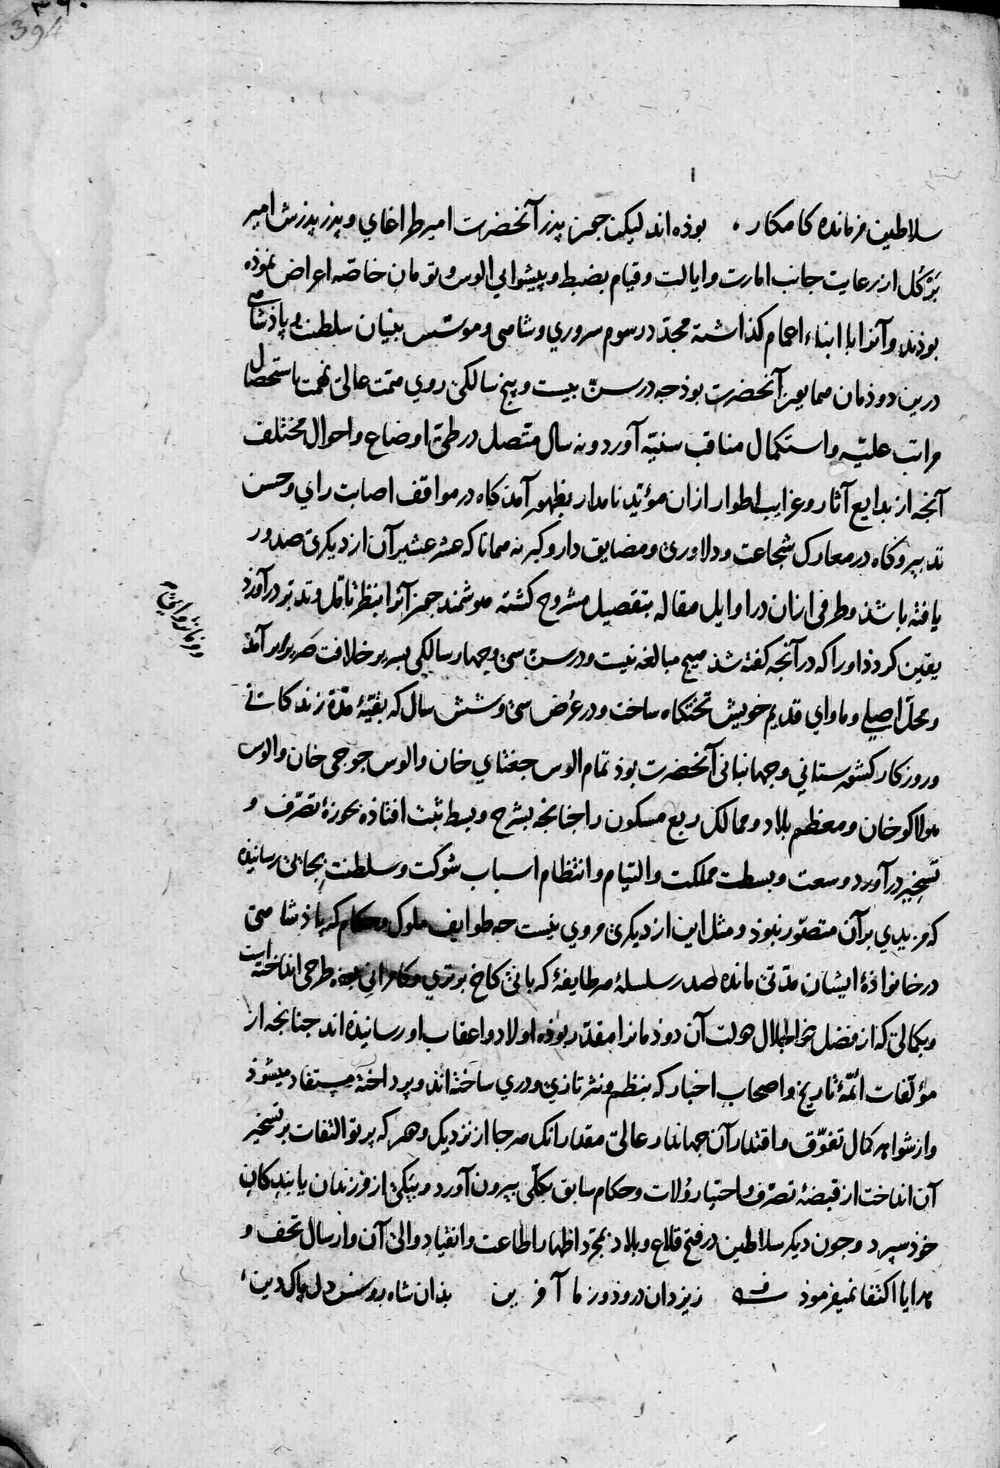 394
سلاطین فرمانده کامکار . بوذه‌اند لیکن چون پذر آنحضرت امیر طراغای و پذر پذرش امیر
برکل از رعایت جانب امارت و ایالت و قیام بضبط و پیشوایی الوس و تومان خاصّه اعراض نموذه
بوذند و آنرا با ابناء اعمام کذاشته مجدّد رسوم سروری و شاهی و موسّس بنیان سلطنت و پاذشاهی
درین دوذمان همایون آنحضرت بوذ چه در سن بیست و پنج سالکی روی همّت عالی نهمت باستحصال
مراتب علیّه و استکمال مناقب سنیّه آورد و نه سال متّصل در طیّ اوضاع و احوال مختلف
آنچه از بدایع آثار و غرایب اطوار ازان مؤیّد نامدار بظهور آمذ کاه در مواقف اصابت رای و حسن
تدبیر و کاه در معارک شجاعت و دلاوری و مضایق دار و کیر نه همانا که عشر عشیر آن از دیکری صدور
یافته باشذ و طرفی ازان در اوایل مقاله بتفصیل مشروح کشته هوشمند چون آنرا بنظر تامّل و تدبّر درآورذ
یقین کرذذ اورا که درآنچه کفته شذ هیچ مبالغه نیست و در سن سی و چهار سالکی بسریر خلافت صریر برآمذ
و محلّ اصلی و ماوای قدیم خویش تختکاه ساخت و در عرض سی و شش سال که بقیّۀ مدّة زندکانی
و روزکار کشورستانی و جهانبانی آنحضرت بوذ تمام الوس جغتای خان و الوس جوجی خان و الوس
هولاکو خان و معظم بلاد و ممالک ربع مسکون را چنانچه بشرح و بسط ثبت افتاذه بحوزۀ تصرّف و
تسخیر درآورد و سعت و بسطت مملکت و التیام و انتظام اسباب شوکت و سلطنت بجائی رسانیده
که مزیدی برآن متصوّر نبوذ و مثل این از دیکری مروی نیست چه طوایف ملوک و حکام که پاذشاهی
در خانواذۀ ایشان مدّتی مانده صدر سلسلۀ هر طایفۀ که بانی کاخ برتری و کامرانی بوذه طرحی انداخته است
و بکمالی که از فضل ذو الجلال حوالت آن دوذمانرا مقدّر بوذه اولاد و اعقاب او رسانیذه‌اند چنانچه از
مؤلّفات ائمّۀ تاریخ و اصحاب اخبار که بنظم و نثر تازی و دری ساخته‌اند و پرداخته مستفاد میشوذ
و از شواهد کمال تفوّق و اقتدار آن جهاندار عالی مقدار انک هر جا از نزدیک و دور که پرتو التفات بر تسخیر
آن انداخت از قبضۀ تصرّف و اختیار ولات و حکام سابق بکلّی بیرون آورد و بیکی از فرزندان یا بندکان
خوذ سپرد و چون دیکر سلاطین در فتح قلاع و بلاد بمجرّد اظهار اطاعت و انقیاد والی آن و ارسال تحف و
هدایا اکتفا نمیفرموذ زیزدان دروذ و ز ما آفرین بذان شاه روشن دل پاک دین